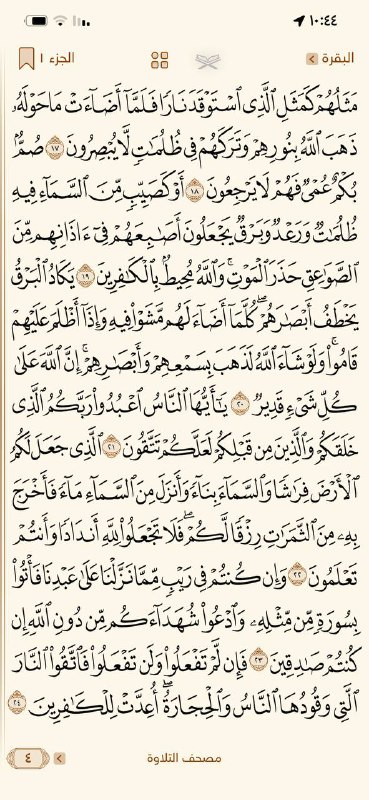 ١٠:٤٤
البقرة
الجزء ١
مَثَلُهُمْ كَمَثَلِ ٱلَّذِى ٱسْتَوْقَدَ نَارًا فَلَمَّآ أَضَآءَتْ مَا حَوْلَهُۥ
ذَهَبَ ٱللَّهُ بِنُورِهِمْ وَتَرَكَهُمْ فِى ظُلُمَٰتٍ لَّا يُبْصِرُونَ ١٧ صُمٌّۢ
بُكْمٌ عُمْىٌ فَهُمْ لَا يَرْجِعُونَ ١٨ أَوْ كَصَيِّبٍ مِّنَ ٱلسَّمَآءِ فِيهِ
ظُلُمَٰتٌ وَرَعْدٌ وَبَرْقٌ يَجْعَلُونَ أَصَٰبِعَهُمْ فِىٓ ءَاذَانِهِم مِّنَ
ٱلصَّوَٰعِقِ حَذَرَ ٱلْمَوْتِ ۚ وَٱللَّهُ مُحِيطٌۢ بِٱلْكَٰفِرِينَ ١٩ يَكَادُ ٱلْبَرْقُ
يَخْطَفُ أَبْصَٰرَهُمْ ۖ كُلَّمَآ أَضَآءَ لَهُم مَّشَوْا۟ فِيهِ وَإِذَآ أَظْلَمَ عَلَيْهِمْ
قَامُوا۟ ۚ وَلَوْ شَآءَ ٱللَّهُ لَذَهَبَ بِسَمْعِهِمْ وَأَبْصَٰرِهِمْ ۚ إِنَّ ٱللَّهَ عَلَىٰ
كُلِّ شَىْءٍ قَدِيرٌ ٢٠ يَٰٓأَيُّهَا ٱلنَّاسُ ٱعْبُدُوا۟ رَبَّكُمُ ٱلَّذِى
خَلَقَكُمْ وَٱلَّذِينَ مِن قَبْلِكُمْ لَعَلَّكُمْ تَتَّقُونَ ٢١ ٱلَّذِى جَعَلَ لَكُمُ
ٱلْأَرْضَ فِرَٰشًا وَٱلسَّمَآءَ بِنَآءً وَأَنزَلَ مِنَ ٱلسَّمَآءِ مَآءً فَأَخْرَجَ
بِهِۦ مِنَ ٱلثَّمَرَٰتِ رِزْقًا لَّكُمْ ۖ فَلَا تَجْعَلُوا۟ لِلَّهِ أَندَادًا وَأَنتُمْ
تَعْلَمُونَ ٢٢ وَإِن كُنتُمْ فِى رَيْبٍ مِّمَّا نَزَّلْنَا عَلَىٰ عَبْدِنَا فَأْتُوا۟
بِسُورَةٍ مِّن مِّثْلِهِۦ وَٱدْعُوا۟ شُهَدَآءَكُم مِّن دُونِ ٱللَّهِ إِن
كُنتُمْ صَٰدِقِينَ ٢٣ فَإِن لَّمْ تَفْعَلُوا۟ وَلَن تَفْعَلُوا۟ فَٱتَّقُوا۟ ٱلنَّارَ
ٱلَّتِى وَقُودُهَا ٱلنَّاسُ وَٱلْحِجَارَةُ ۖ أُعِدَّتْ لِلْكَٰفِرِينَ ٢٤
مصحف التلاوة
٤